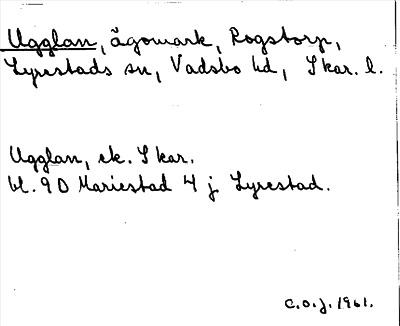 Ugglan, ägomark, Rogstorp,
Lyrestads sn, Vadsbo hd, Skar. l.
Ugglan, ek. Skar.
bl. 90 Mariestad 4 j Lyrestad.
C.O.J. 1961.